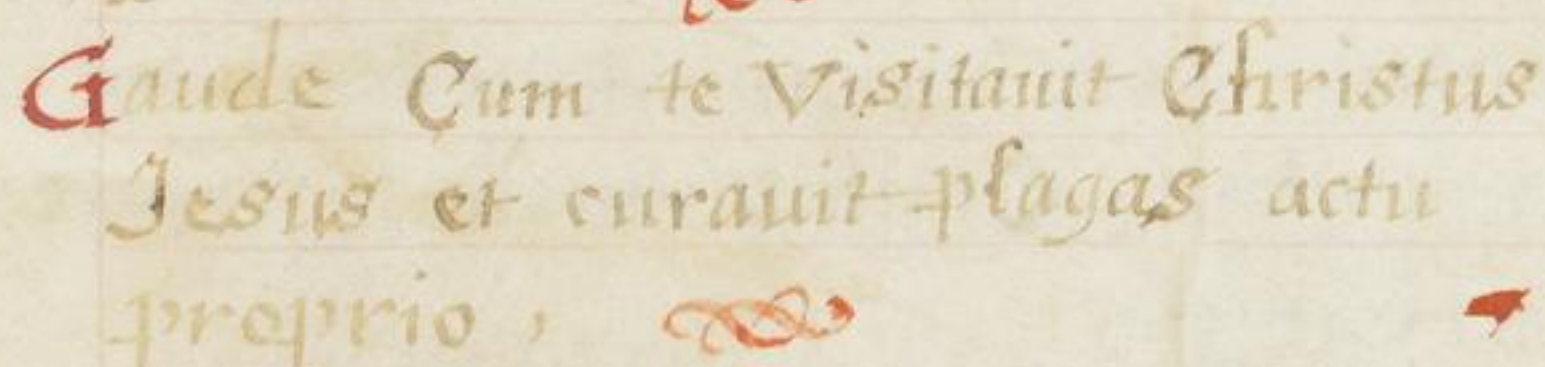 Gaude Cum te Visitauit Christus
Jesus et curauit plagas actu
proprio,